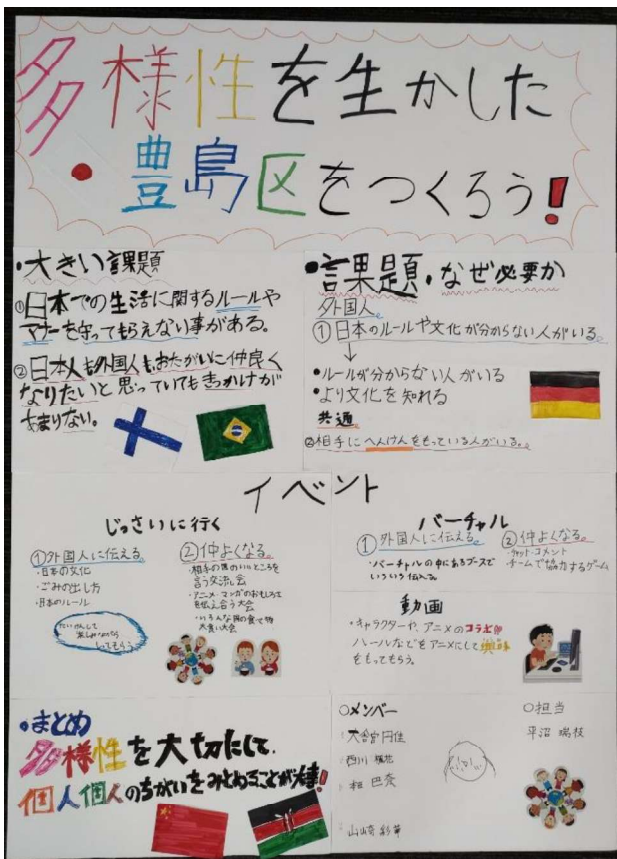 多様性を生かした
豊島区をつくろう!
・大きい課題
①日本での生活に関するルールや
マナーを守ってもらえない事がある。
②日本人も外国人も、おたがいに仲良く
なりたいと思っていてもきっかけが
あまりない。
・課題・なぜ必要か
外国人
①日本のルールや文化が分からない人がいる。
↓
・ルールが分からない人がいる
・より文化を知れる
共通
②相手にへんけんをもっている人がいる。
イベント
じっさいに行く
①外国人に伝える。
・日本の文化
・ごみの出し方
・日本のルール
たいけんして
楽しみながら
してもらう
②仲よくなる。
・相手の国のいいところを
言う交流会
・アニメ・マンガのおもしろさ
を伝え合う大会
・いろんな国の食べ物
大食い大会
バーチャル
①外国人に伝える。
・バーチャルの中にあるブースで
いろいろ伝える。
②仲よくなる。
チャット・コメント
チームで協力するゲーム
動画
・キャラクターや、アニメのコラボ!!!
ルールなどをアニメにして興味
をもってもらう。
・まとめ
多様性を大切にして、
個人個人のちがいをみとめることが大事!
○メンバー
西川
山崎
○担当
平沼 瑞枝